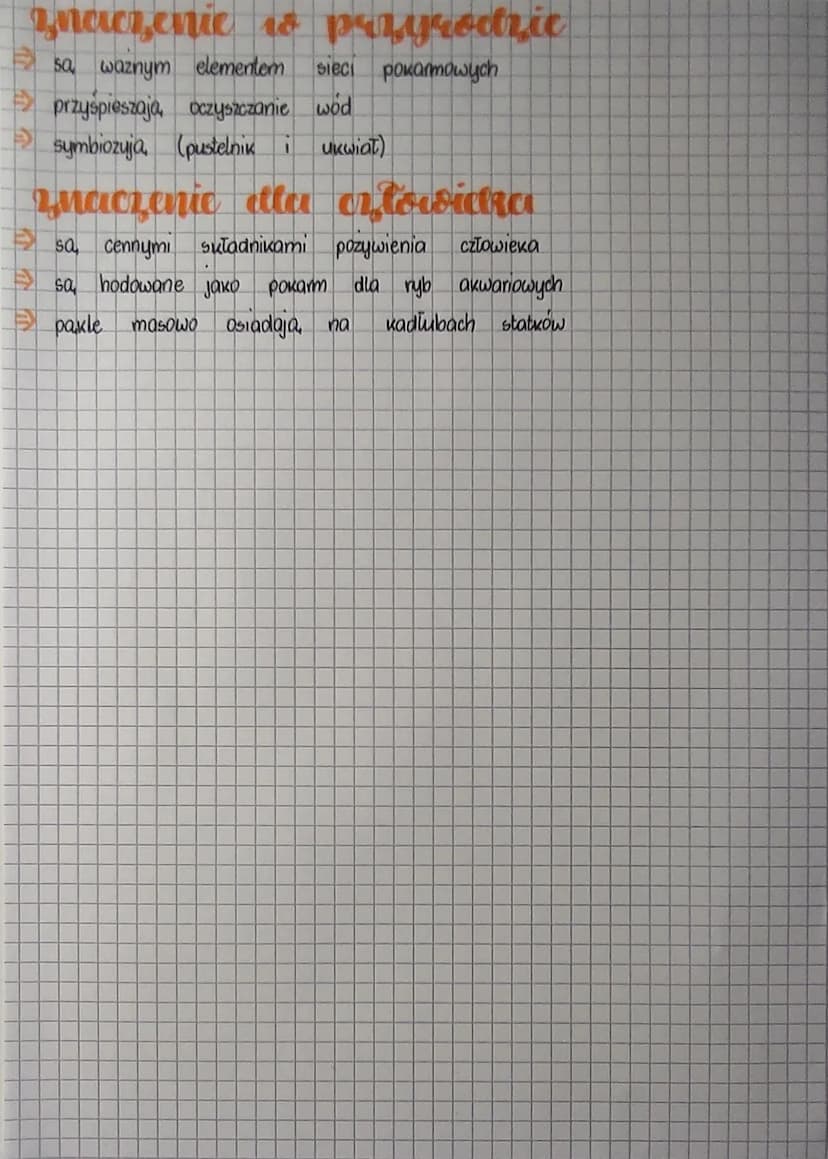 znaczenie w przyrodzie
⇒ są ważnym elementem sieci pokarmowych
⇒ przyśpieszają oczyszczanie wód
⇒ symbiozują (pustelnik i ukwiał)
znaczenie dla człowieka
⇒ są cennymi składnikami pożywienia człowieka
⇒ są hodowane jako pokarm dla ryb akwariowych
⇒ pąkle masowo osiadają na kadłubach statków